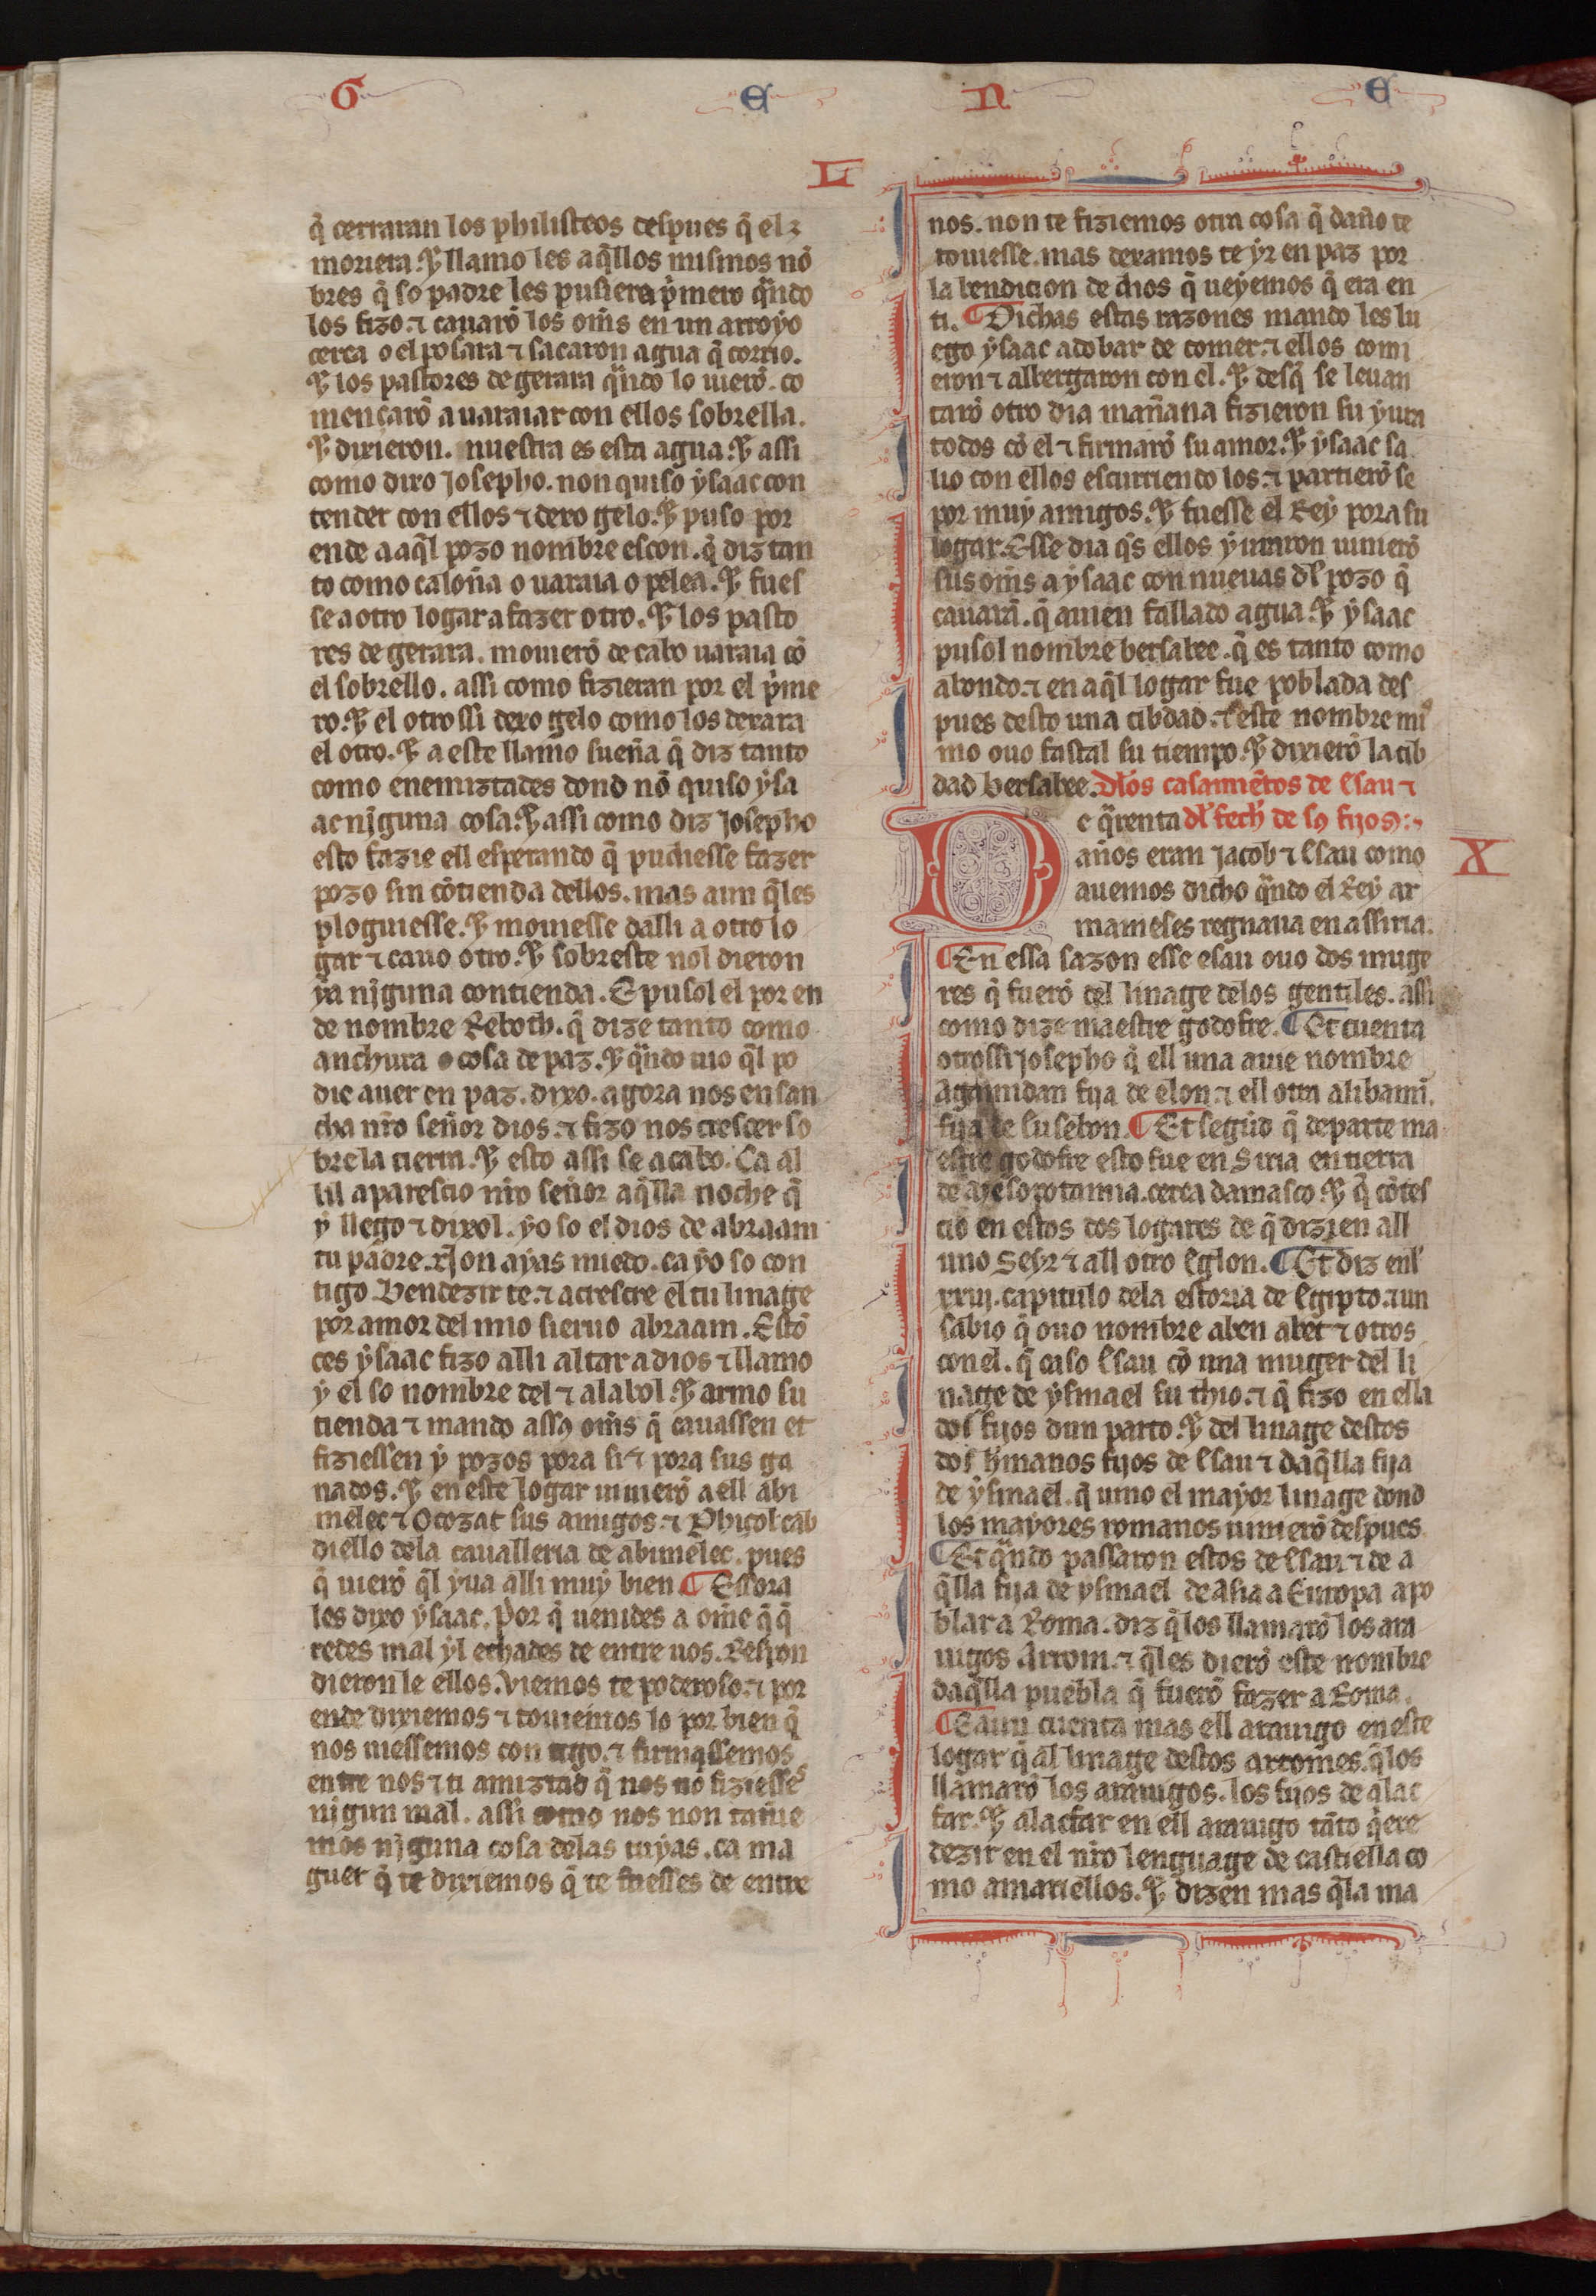 G E N E
L
q̃ cerraran los philisteos despues q̃ elz
moriera. ⁊ llamo les aq̃llos mismos nõ
bres q̃ so padre les pusiera p̃mero qñdo
los fizo. ⁊ cauarõ los om̃s en un arroyo
cerca o el posara ⁊ sacaron agua q̃ corrio.
⁊ los pastores de gerara qñdo lo uierõ. co
mençarõ a uaraiar con ellos sobrella.
⁊ dixieron. nuestra es esta agua. ⁊ assi
como dixo josepho. non quiso ysaac con
tender con ellos ⁊ dexo gelo. ⁊ puso por
ende a aq̃l pozo nombre escon. q̃ diz tan
to como caloña o uaraia o pelea. ⁊ fues
se a otro logar a fazer otro. ⁊ los pasto
res de gerara. mouierõ de cabo uaraia cõ
el sobrello. assi como fizieran por el p̃me
ro. ⁊ el otrossi dexo gelo como los dexara
el otro. ⁊ a este llamo sueña q̃ diz tanto
como enemiztades dond nõ quiso ysa
ac njguna cosa. ⁊ assi como diz josepho
esto fazie ell esperando q̃ pudiesse fazer
pozo sin cõtienda dellos. mas aun q̃les
ploguiesse. ⁊ mouiesse dalli a otro lo
gar ⁊ cauo otro. ⁊ sobreste nol dieron
ya njguna contienda. E pusol el por en
de nombre Reboth. q̃ dize tanto como
anchura o cosa de paz. ⁊ qñdo uio q̃l po
die auer en paz. dixo. agora nos ensan
cha nr̃o señor dios. ⁊ fizo nos crescer so
bre la tierra. ⁊ esto assi se acabo. Ca al
lil aparescio nr̃o señor aq̃lla noche q̃
y llego ⁊ dixol. yo so el dios de abraam
tu padre. Non ayas miedo. ca yo so con
tigo Bendezir te. ⁊ acrescre el tu linage
por amor del mio sieruo abraam. Estõ
ces ysaac fizo alli altar a dios ⁊ llamo
y el so nombre del ⁊ alabol. ⁊ armo su
tienda ⁊ mando assꝯ om̃s q̃ cauassen et
fiziessen y pozos pora si ⁊ pora sus ga
nados. ⁊ en este logar uinierõ a ell abi
melec ⁊ Ocozat sus amigos. ⁊ Phicol cab
diello dela caualleria de abimelec. pues
q̃ uierõ q̃l yua alli muy bien. ¶ Essora
les dixo ysaac. Por q̃ uenides a om̃e q̃ q̃
redes mal yl echades de entre uos. Respon
dieron le ellos. Viemos te poderoso. ⁊ por
ende dixiemos ⁊ touiemos lo por bien q̃
nos uiessemos con tigo. ⁊ firmassemos
entre nos ⁊ ti amiztad q̃ nos nõ fiziesses
njgun mal. assi como nos non tañie
mos njguna cosa delas tuyas. ca ma
guer q̃ te dixiemos q̃ te fuesses de entre
nos. non te fiziemos otra cosa q̃ daño te
touiesse. mas dexamos te yr en paz por
la bendicion de dios q̃ ueyemos q̃ era en
ti. ¶ Dichas estas razones mando les lu
ego ysaac adobar de comer. ⁊ ellos comi
eron ⁊ albergaron con el. ⁊ desq̃ se leuan
tarõ otro dia mañana fizieron su yura
todos cõ el ⁊ firmarõ su amor. ⁊ ysaac sa
lio con ellos escurriendo los. ⁊ partierõ se
por muy amigos. ⁊ fuesse el Rey pora su
logar. Esse dia q̃s ellos yuraron uinierõ
sus om̃s a ysaac con nueuas dl̃ pozo q̃
cauarã. q̃ auien fallado agua. ⁊ ysaac
pusol nombre bersabee. q̃ es tanto como
abondo. ⁊ en aq̃l logar fue poblada des
pues desto una cibdad. ⁊ este nombre mis
mo ouo fastal su tiempo. ⁊ dixierõ la cib
dad bersabee. Dlos casamiẽtos de Esau ⁊
De q̃renta dl̃ fech de sꝯ fijos:
años eran jacob ⁊ Esau como
auemos dicho qñdo el Rey ar
mameses regnaua en assiria.
X
¶ En essa sazon esse esau ouo dos muge
res q̃ fuerõ del linage delos gentiles. assi
como dize maestre godofre. ¶ Et cuenta
otrossi josepho q̃ ell una auie nombre
fija de elon. ⁊ ell otra alibamã.
fija de su sebon. ¶ Et segũd q̃ departe ma
estre godofre esto fue en Siria en tierra
de Mesopotamia. cerca damasco. ⁊ q̃ cõtes
cio en estos dos logares de q̃ dizien all
uno Seyr ⁊ all otro Eglon. ¶ Et diz enl
xxiij. capitulo dela estoria de Egipto. ⁊ un
sabio q̃ ouo nombre aben abet ⁊ otros
con el. q̃ caso Esau cõ una muger del li
nage de ysmael su thio. ⁊ q̃ fizo en ella
dos fijos dun parto. ⁊ del linage destos
dos hm̃anos fijos de Esau ⁊ daq̃lla fija
de ysmael. q̃ uino el mayor linage dond
los mayores romanos uinierõ despues.
¶ Et qñdo passaron estos de Esau ⁊ de a
q̃lla fija de ysmael de asia a Europa a po
blar a Roma. diz q̃ los llamarõ los ara
uigos Arrom. ⁊ q̃les dierõ este nombre
daq̃lla puebla q̃ fuerõ fazer a Roma.
¶ E aun cuenta mas ell arauigo en este
logar q̃ al linage destos arromes. q̃ los
llamarõ los arauigos. los fijos de alac
far. ⁊ alacfar en ell arauigo tãto q̃ere
dezir en el nr̃o lenguage de castiella co
mo amariellos. ⁊ dizen mas q̃ la ma